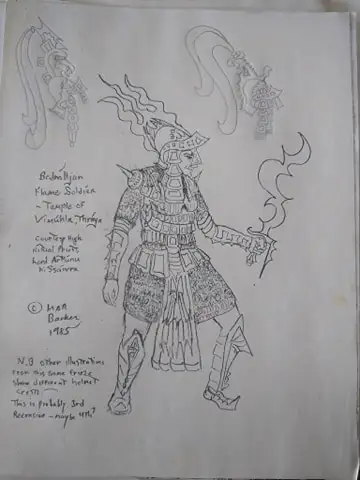 Flame Soldier
- Temple of
Vimúhla, Thráya
Courtesy High
Ritual Priest,
Lord
© MAR
Barker
1985
N.B other illustrations
from this same frieze
show different helmet
crests
This is probably 3rd
Recension - maybe 4th?